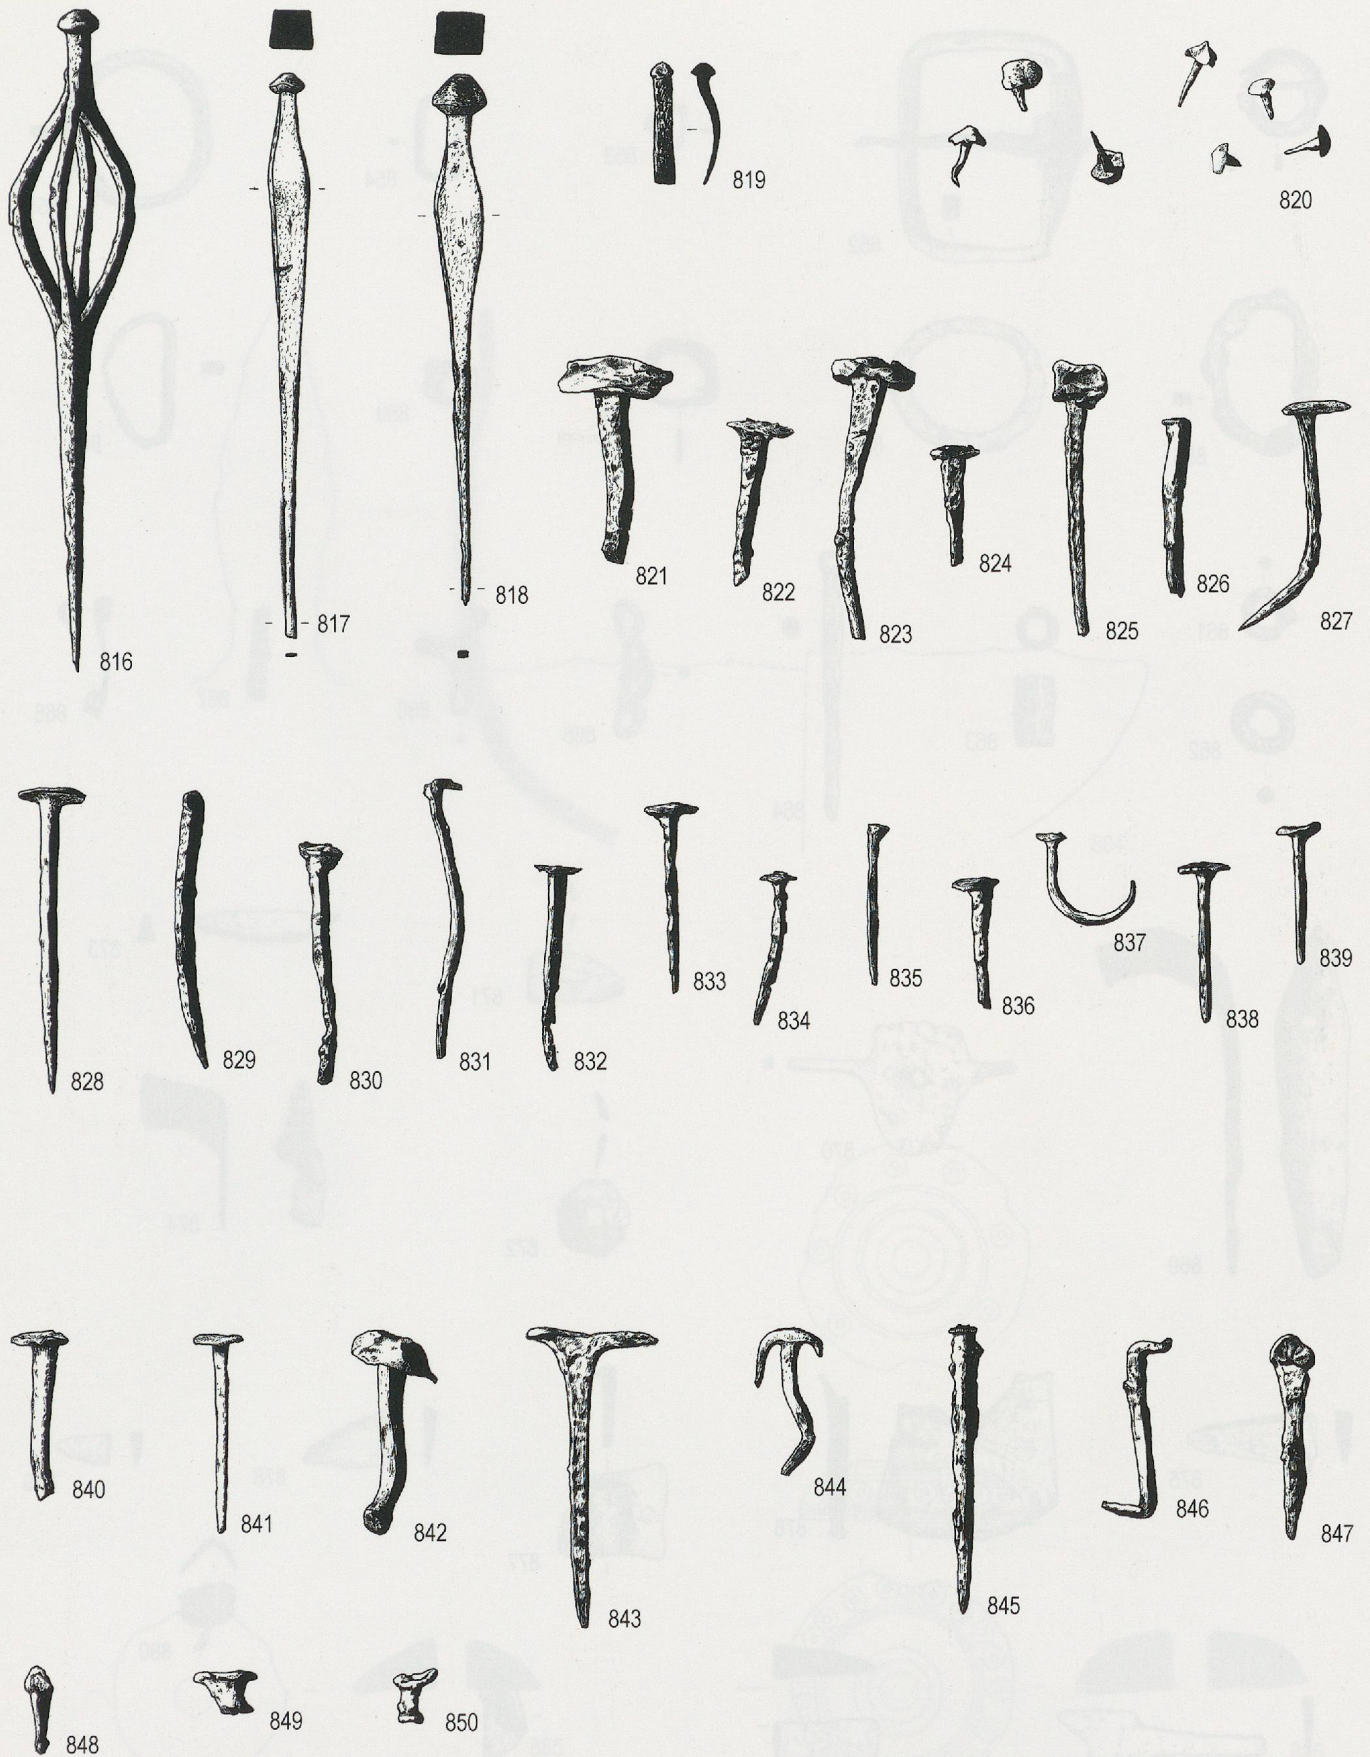 819
820
816
817
818
821
822
823
824
825
826
827
828
829
830
831
832
833
834
835
836
837
838
839
840
841
842
843
844
845
846
847
848
849
850